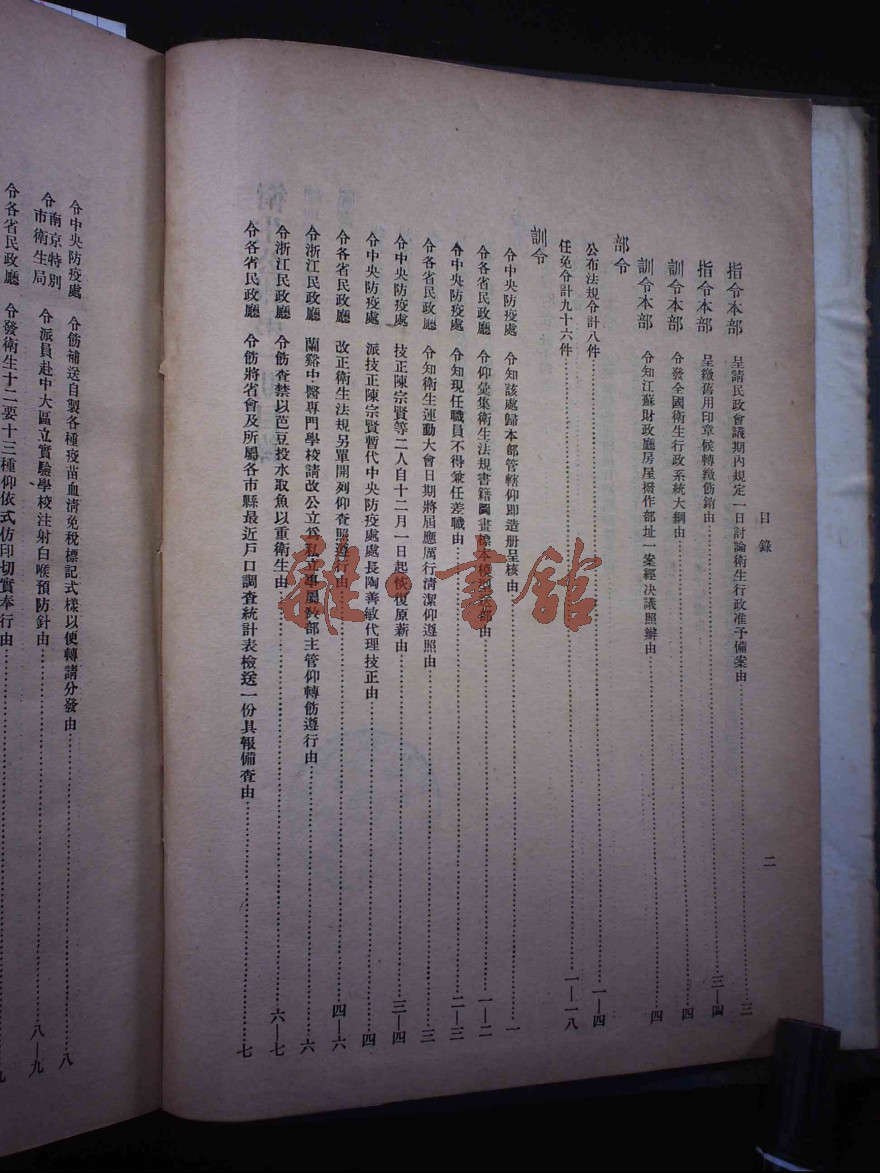 目錄
二
指令本部 呈請民政會議期內規定一日討論衛生行政准予備案由 三
指令本部 呈繳舊用印章候轉繳飭銷由 三—四
訓令本部 令發全國衛生行政系統大綱由 四
訓令本部 令知江蘇財政廳房屋撥作部址一案經决議照辦由 四
部令
公布法規令計八件 一—四
任免令計九十六件 一—一八
訓令
令中央防疫處 令知該處歸本部管轄仰即造册呈核由 一
令各省民政廳 令仰彙集衛生法規書籍圖畫標本模型 部由 一—二
令中央防疫處 令知現任職員不得兼任差職由 二—三
令各省民政廳 令知衛生運動大會日期將屆應厲行清潔仰遵照由 三
令中央防疫處 技正陳宗賢等二人自十二月一日起恢復原薪由 三—四
令中央防疫處 派技正陳宗賢暫代中央防疫處處長陶善敏代理技正由 四
令各省民政廳 改正衛生法規另單開列仰查照遵行由 四—六
令浙江民政廳 蘭谿中醫專門學校請改公立爲私立事屬教部主管仰轉飭遵行由 六
令浙江民政廳 令飭查禁以芭豆投水取魚以重衛生由 六—七
令各省民政廳 令飭將省會及所屬各市縣最近戶口調查統計表檢送一份具報備查由 七
令中央防疫處 令飭補送自製各種疫苗血清免稅標記式樣以便轉請分發由 八
令南京特別市衛生局 令派員赴中大區立實驗學校注射白喉預防針由 八—九
令各省民政廳 令發衛生十二要十三種仰依式仿印切實奉行由 九
龍·書館